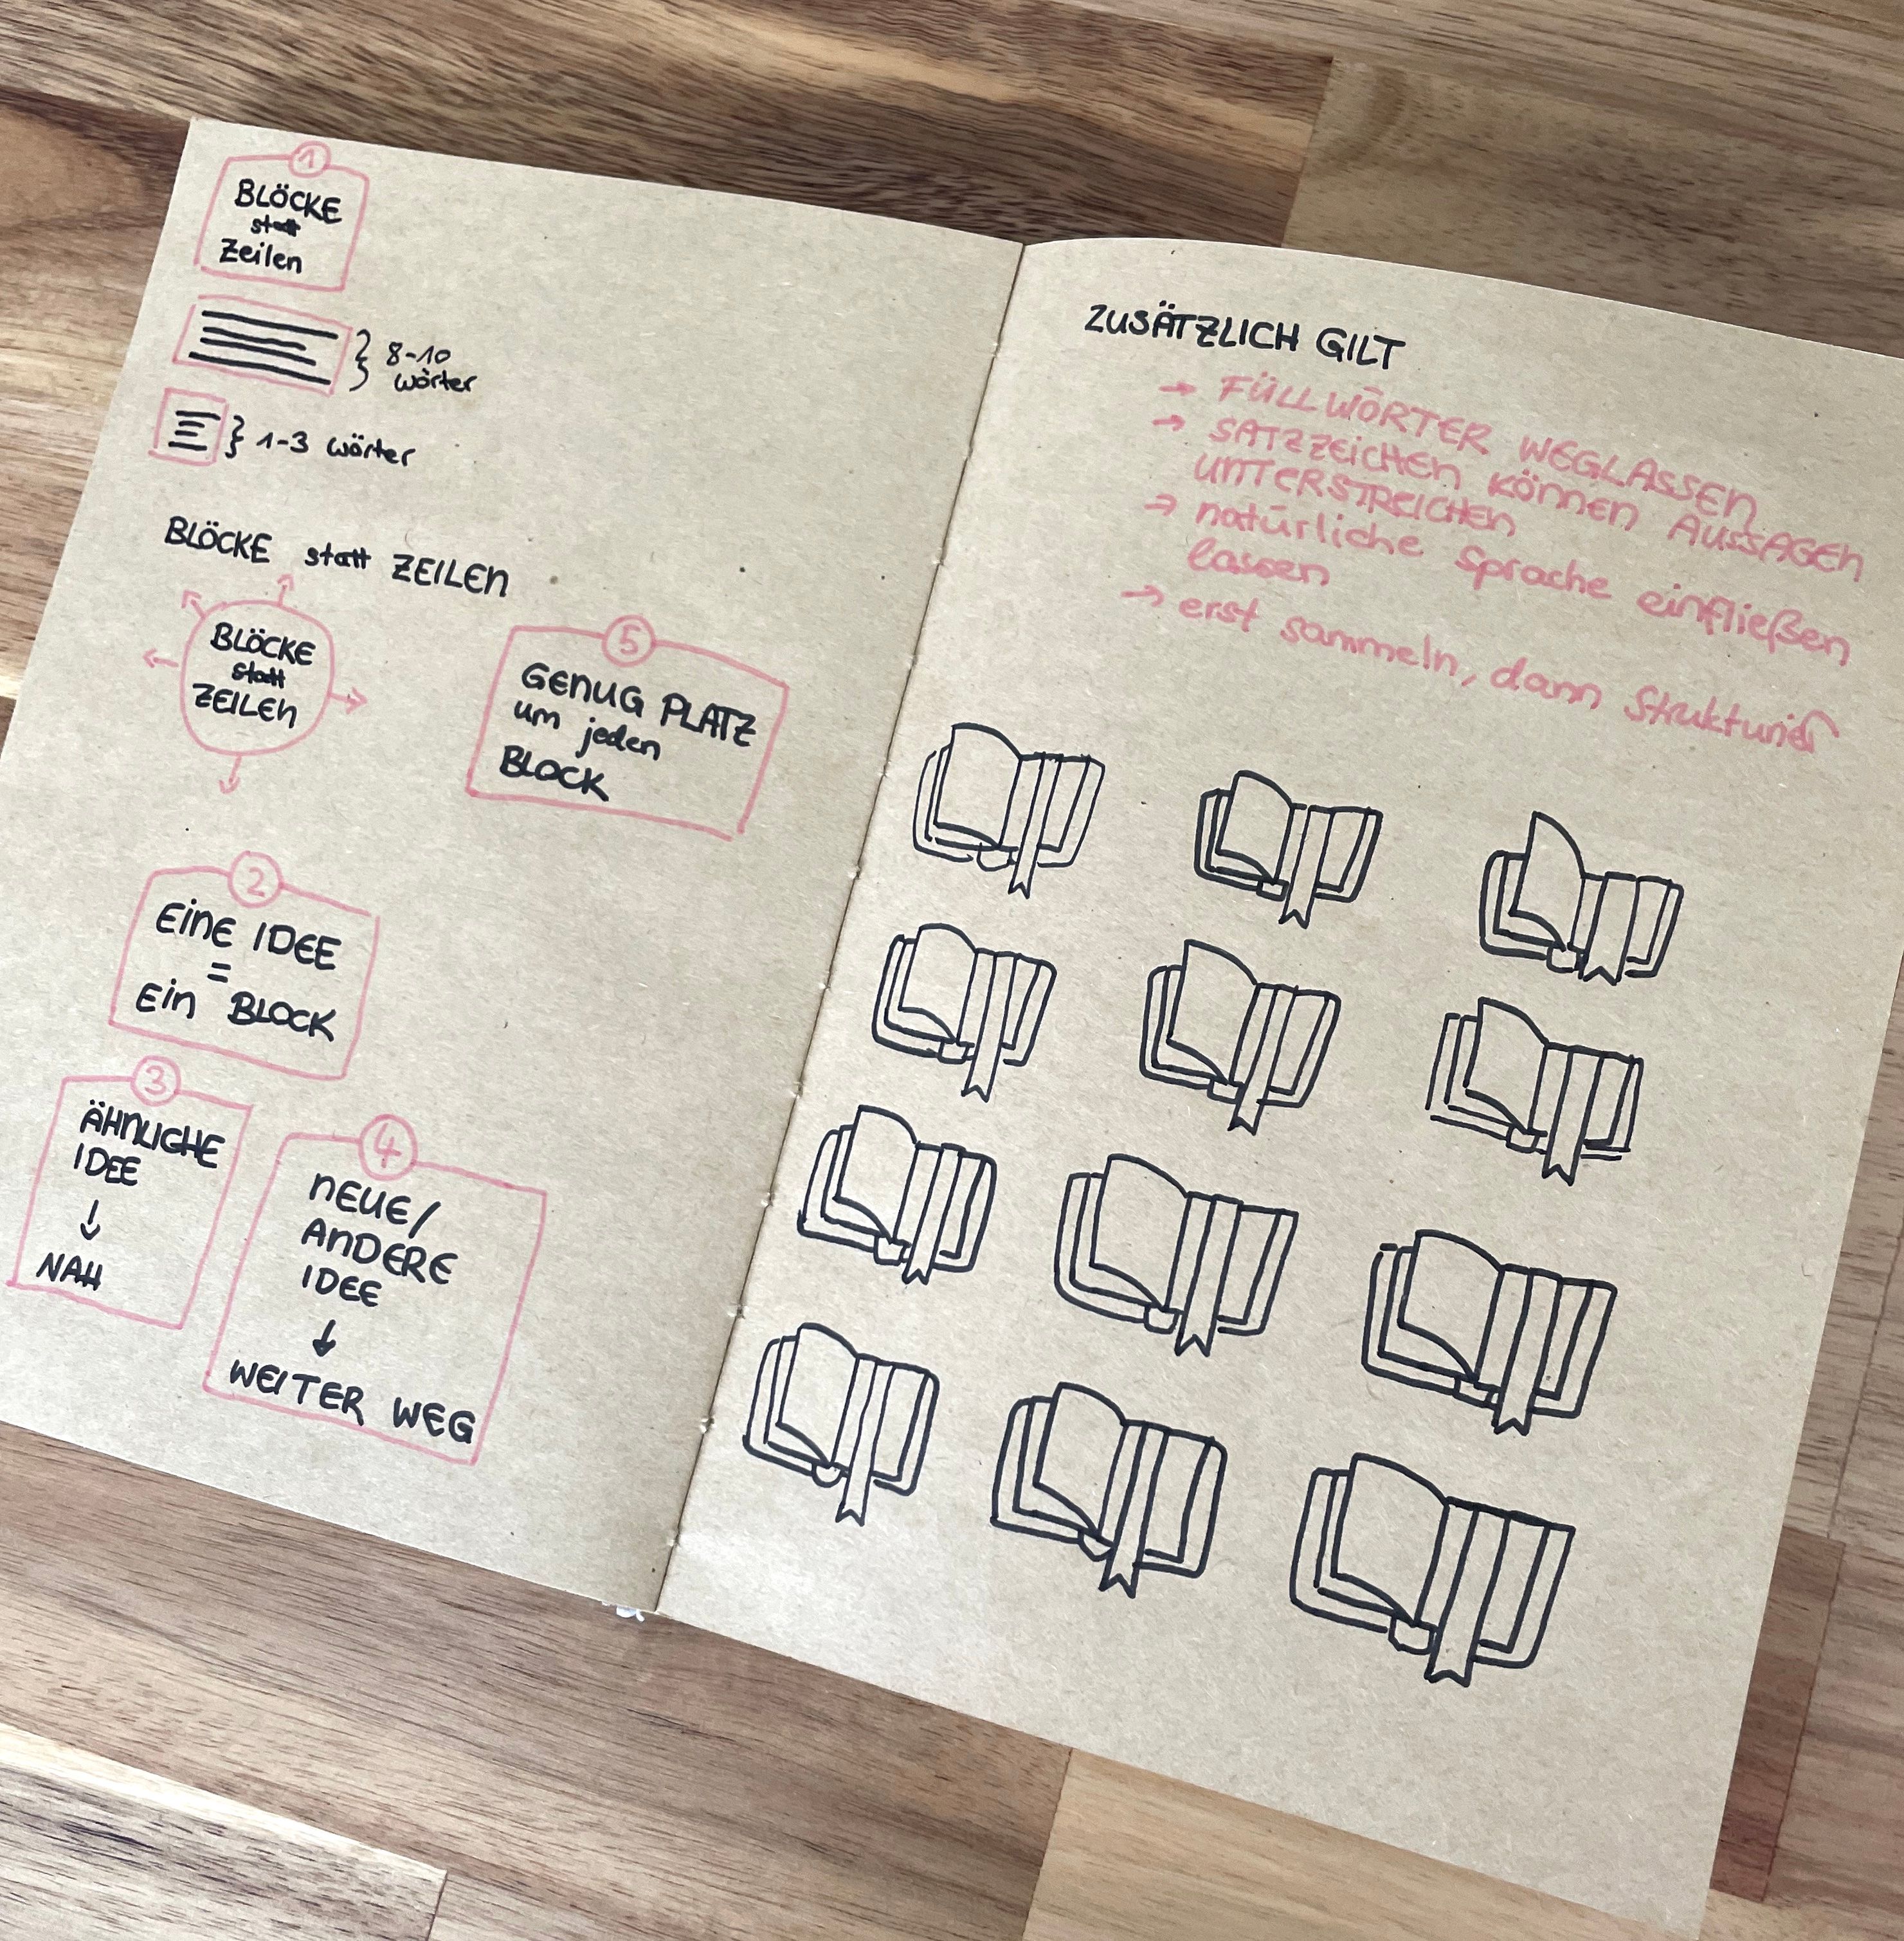 1
BLÖCKE
statt
Zeilen
8-10
wörter
1-3 wörter
BLÖCKE statt ZEILEN
BLÖCKE
statt
ZEILEN
5
GENUG PLATZ
um jeden
BLOCK
2
EINE IDEE
=
EIN BLOCK
3
ÄHNLICHE
IDEE
↓
NAH
4
NEUE/
ANDERE
IDEE
↓
WEITER WEG
ZUSÄTZLICH GILT
→ FÜLLWÖRTER WEGLASSEN
→ SATZZEICHEN KÖNNEN AUSSAGEN
UNTERSTREICHEN
→ natürliche Sprache einfließen
lassen
→ erst sammeln, dann